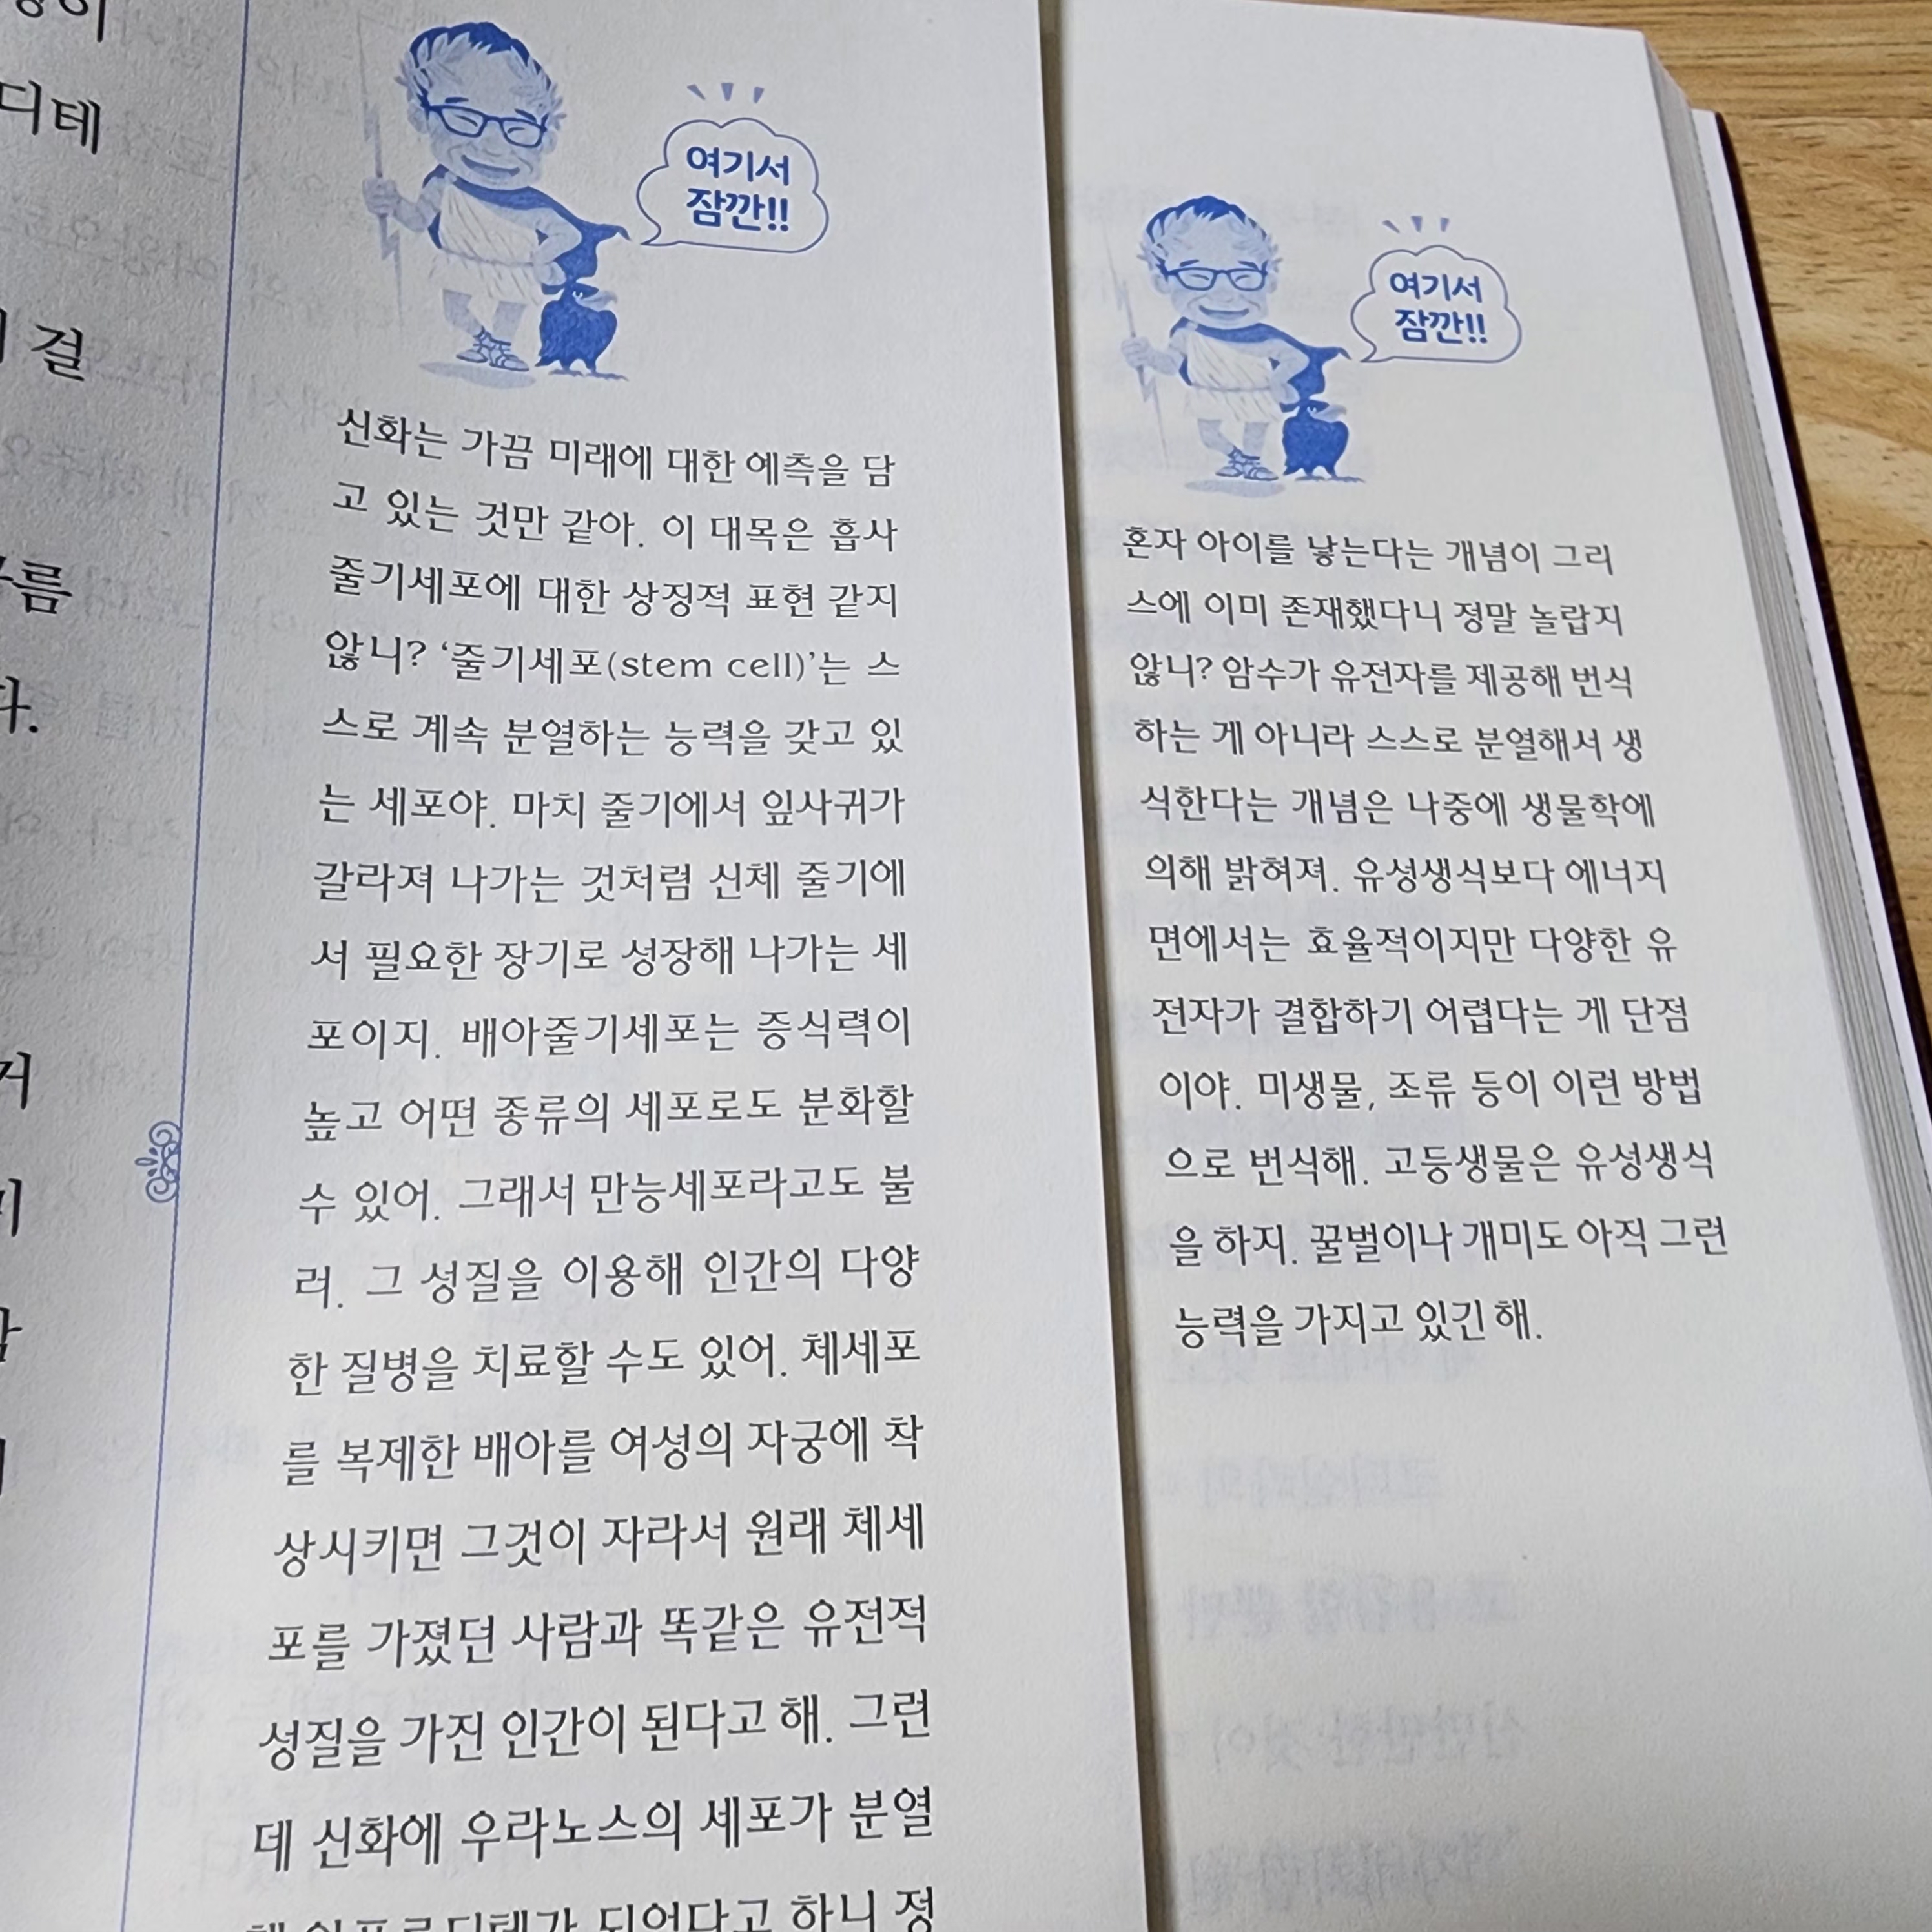 디테
걸
름
다.
여기서
잠깐!!
신화는 가끔 미래에 대한 예측을 담
고 있는 것만 같아. 이 대목은 흡사
줄기세포에 대한 상징적 표현 같지
않니? ‘줄기세포(stem cell)’는 스
스로 계속 분열하는 능력을 갖고 있
는 세포야. 마치 줄기에서 잎사귀가
갈라져 나가는 것처럼 신체 줄기에
서 필요한 장기로 성장해 나가는 세
포이지. 배아줄기세포는 증식력이
높고 어떤 종류의 세포로도 분화할
수 있어. 그래서 만능세포라고도 불
러. 그 성질을 이용해 인간의 다양
한 질병을 치료할 수도 있어. 체세포
를 복제한 배아를 여성의 자궁에 착
상시키면 그것이 자라서 원래 체세
포를 가졌던 사람과 똑같은 유전적
성질을 가진 인간이 된다고 해. 그런
데 신화에 우라노스의 세포가 분열
해 아프로디테가 되었다고 하니 정
여기서
잠깐!!
혼자 아이를 낳는다는 개념이 그리
스에 이미 존재했다니 정말 놀랍지
않니? 암수가 유전자를 제공해 번식
하는 게 아니라 스스로 분열해서 생
식한다는 개념은 나중에 생물학에
의해 밝혀져. 유성생식보다 에너지
면에서는 효율적이지만 다양한 유
전자가 결합하기 어렵다는 게 단점
이야. 미생물, 조류 등이 이런 방법
으로 번식해. 고등생물은 유성생식
을 하지. 꿀벌이나 개미도 아직 그런
능력을 가지고 있긴 해.